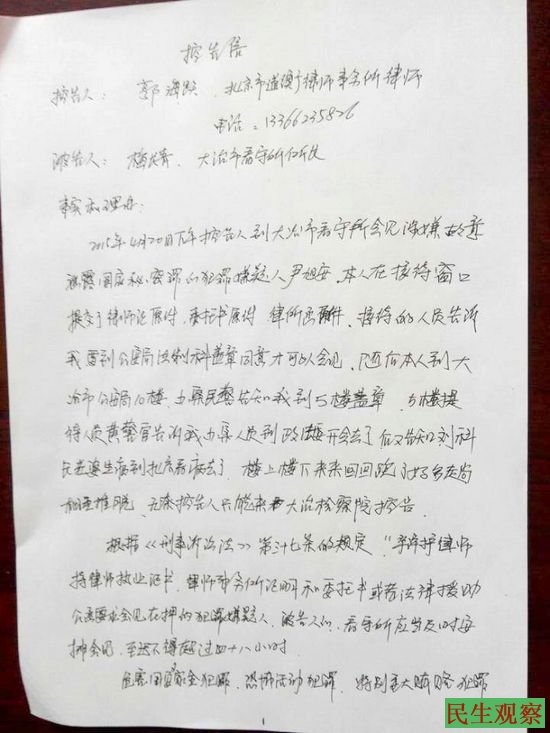 控告信
控告人： 郭海跃 、北京市道衡律师事务所律师
电话：13366235826
被告人： 梅长青 、大冶市看守所所长
事实和理由：
2015年4月20日下午控告人到大冶市看守所会见涉嫌故意
泄露国家秘密罪的犯罪嫌疑人尹旭安，本人在接待窗口
提交了律师证原件、委托书原件 律所函原件，接待的人员告诉
我要到公安局法制科盖章同意才可以会见，随后本人到大
冶市公安局10楼，办案民警告知我到5楼盖章，5楼接
待人员黄警官告诉我办案人员到政法委开会去了后又告知刘科
长老婆生病到北京看病去了，楼上楼下来来回回跑了好多次后
相互推脱，无奈控告人只能来大冶检察院控告。
根据《刑事诉讼法》第三十七条的规定，"辩护律师
持律师执业证书、律师事务所证明和委托书或者法律援助
公函要求会见在押的犯罪嫌疑人、被告人的，看守所应当及时安
排会见，至迟不得超过四十八小时
危害国家安全犯罪、恐怖活动犯罪、特别重大贿赂犯罪
1
民生观察